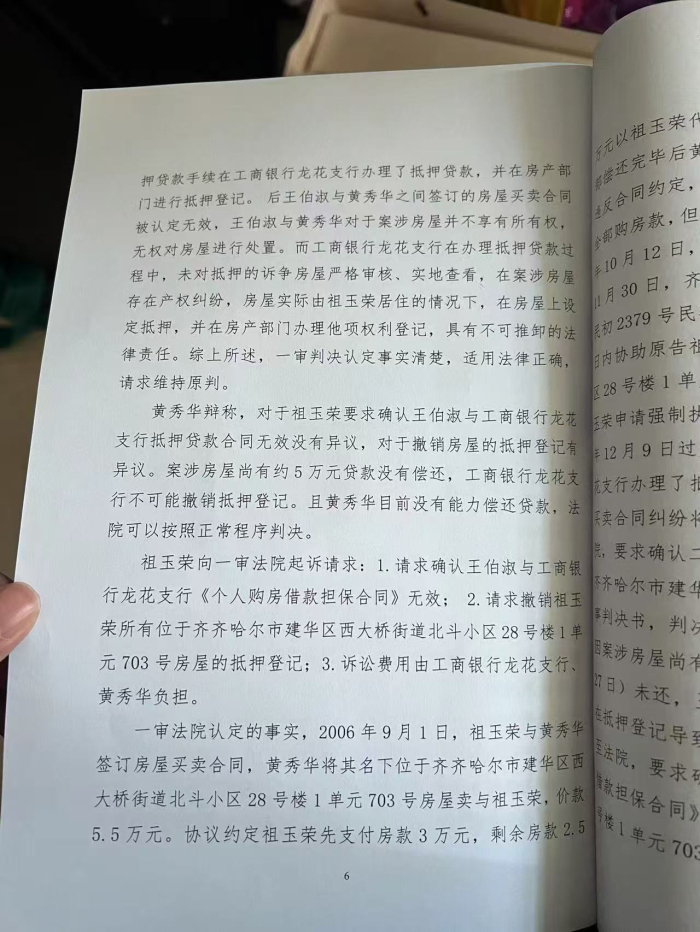 押贷款手续在工商银行龙花支行办理了抵押贷款，并在房产部
门进行抵押登记。 后王伯淑与黄秀华之间签订的房屋买卖合同
被认定无效，王伯淑与黄秀华对于案涉房屋并不享有所有权，
无权对房屋进行处置。而工商银行龙花支行在办理抵押贷款过
程中，未对抵押的诉争房屋严格审核、实地查看，在案涉房屋
存在产权纠纷，房屋实际由祖玉荣居住的情况下，在房屋上设
定抵押，并在房产部门办理他项权利登记，具有不可推卸的法
律责任。综上所述，一审判决认定事实清楚，适用法律正确，
请求维持原判。
黄秀华辩称，对于祖玉荣要求确认王伯淑与工商银行龙花
支行抵押贷款合同无效没有异议，对于撤销房屋的抵押登记有
异议。案涉房屋尚有约 5 万元贷款没有偿还，工商银行龙花支
行不可能撤销抵押登记。且黄秀华目前没有能力偿还贷款，法
院可以按照正常程序判决。
祖玉荣向一审法院起诉请求：1.请求确认王伯淑与工商银
行龙花支行《个人购房借款担保合同》无效； 2.请求撤销祖玉
荣所有位于齐齐哈尔市建华区西大桥街道北斗小区 28 号楼 1 单
元 703 号房屋的抵押登记；3.诉讼费用由工商银行龙花支行、
黄秀华负担。
一审法院认定的事实，2006 年 9 月 1 日，祖玉荣与黄秀华
签订房屋买卖合同，黄秀华将其名下位于齐齐哈尔市建华区西
大桥街道北斗小区 28 号楼 1 单元 703 号房屋卖与祖玉荣，价款
5.5 万元。协议约定祖玉荣先支付房款 3 万元，剩余房款 2.5
6
万元以祖玉荣代
偿还完毕后黄
反合同约定，
部购房款，但
年 10 月 12 日，
月 30 日，齐
民初 2379 号民
日内协助原告祖
区 28 号楼 1 单
玉荣申请强制执
年 12 月 9 日过
支行办理了抵
买卖合同纠纷将
院，要求确认二
齐齐哈尔市建华
事判决书，判决
因案涉房屋尚有
27 日）未还，
在抵押登记导致
至法院，要求确
借款担保合同》
号楼 1 单元 703